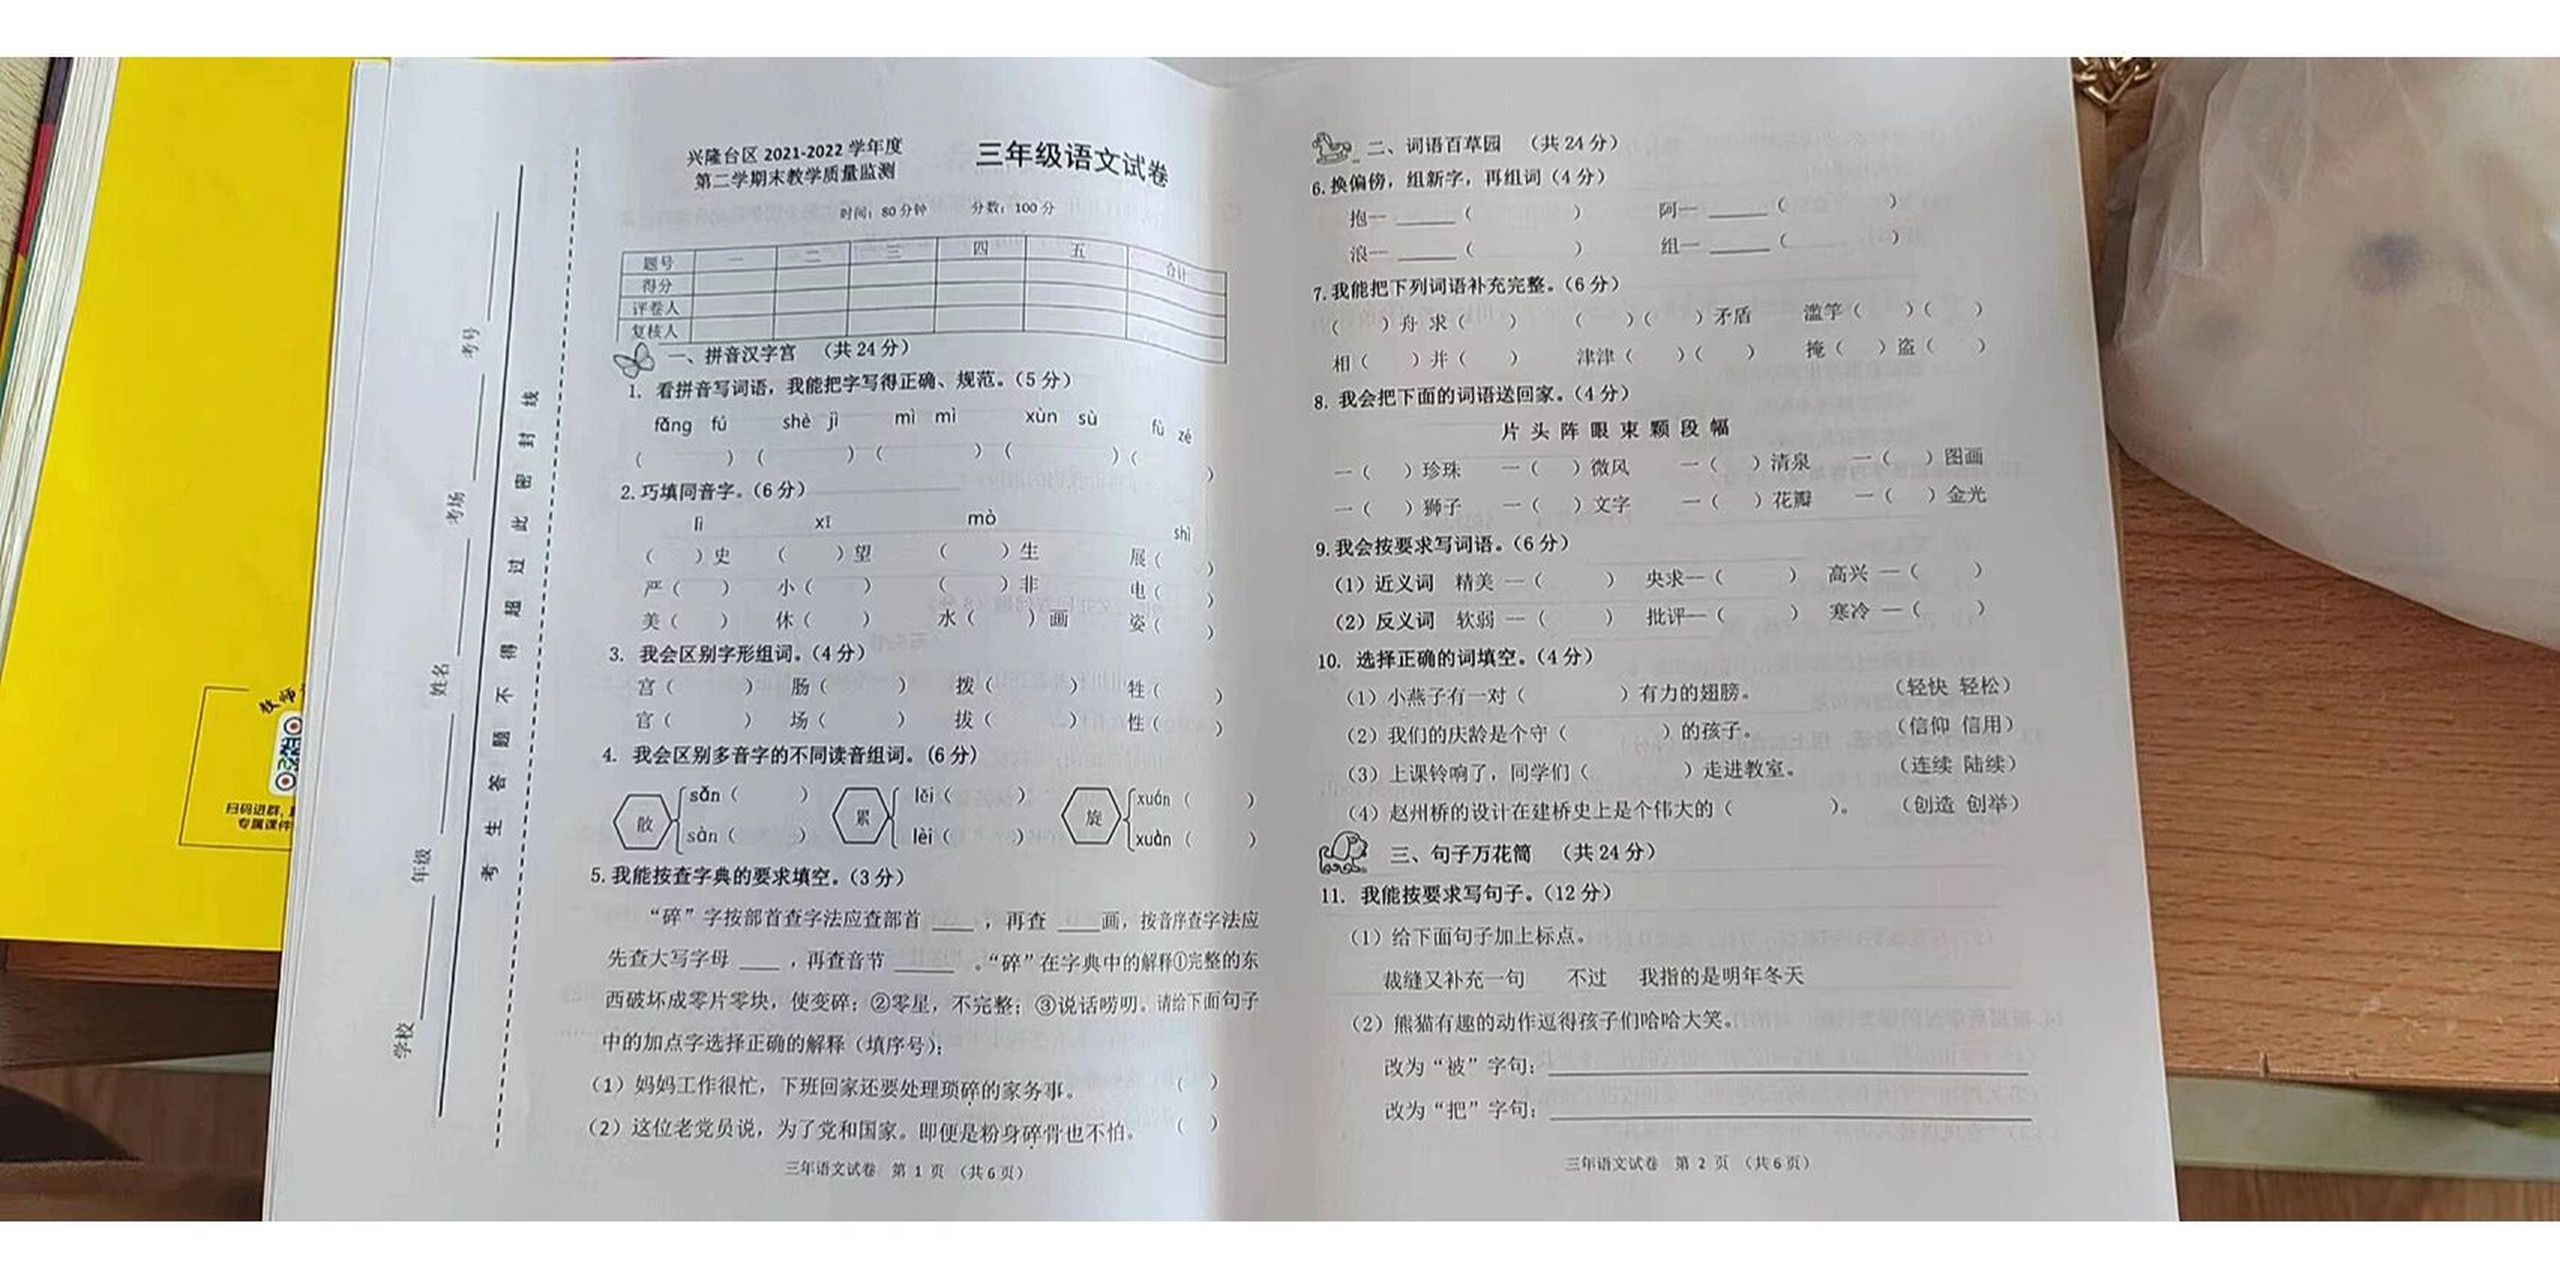 兴隆台区 2021-2022 学年度
第二学期末教学质量监测
三年级语文试卷
时间：80 分钟 分数：100 分
题号 一 二 三 四 五 合计
得分
评卷人
复核人
一、拼音汉字宫 （共 24 分）
1. 看拼音写词语，我能把字写得正确、规范。（5 分）
fǎng fú shè jì mì mì xùn sù fù zé
（ ）（ ）（ ）（ ）（ ）
2.巧填同音字。（6 分）
lì xī mò shì
（ ）史 （ ）望 （ ）生 展（ ）
严（ ） 小（ ） （ ）非 电（ ）
美（ ） 休（ ） 水（ ）画 姿（ ）
3. 我会区别字形组词。（4 分）
宫（ ） 肠（ ） 拨（ ） 牲（ ）
官（ ） 场（ ） 拔（ ） 性（ ）
4. 我会区别多音字的不同读音组词。（6 分）
散 sǎn（ ） sàn（ ） 累 lěi（ ） lèi（ ） 旋 xuán（ ） xuàn（ ）
5.我能按查字典的要求填空。（3 分）
“碎”字按部首查字法应查部首____，再查____画，按音序查字法应
先查大写字母____，再查音节_____。“碎”在字典中的解释①完整的东
西破坏成零片零块，使变碎；②零星，不完整；③说话唠叨。请给下面句子
中的加点字选择正确的解释（填序号）；
（1）妈妈工作很忙，下班回家还要处理琐碎的家务事。 （ ）
（2）这位老党员说，为了党和国家。即便是粉身碎骨也不怕。 （ ）
三年语文试卷 第 1 页 （共 6 页）
二、词语百草园 （共 24 分）
6.换偏傍，组新字，再组词（4 分）
抱—_____（ ） 阿—_____（ ）
浪—_____（ ） 组—_____（ ）
7.我能把下列词语补充完整。（6 分）
（ ）舟 求（ ） （ ）（ ）矛盾 滥竽（ ）（ ）
相（ ）并（ ） 津津（ ）（ ） 掩（ ）盗（ ）
8. 我会把下面的词语送回家。（4 分）
片 头 阵 眼 束 颗 段 幅
一（ ）珍珠 一（ ）微风 一（ ）清泉 一（ ）图画
一（ ）狮子 一（ ）文字 一（ ）花瓣 一（ ）金光
9.我会按要求写词语。（6 分）
（1）近义词 精美 —（ ） 央求—（ ） 高兴 —（ ）
（2）反义词 软弱 —（ ） 批评—（ ） 寒冷 —（ ）
10. 选择正确的词填空。（4 分）
（1）小燕子有一对（ ）有力的翅膀。 （轻快 轻松）
（2）我们的庆龄是个守（ ）的孩子。 （信仰 信用）
（3）上课铃响了，同学们（ ）走进教室。 （连续 陆续）
（4）赵州桥的设计在建桥史上是个伟大的（ ）。 （创造 创举）
三、句子万花筒 （共 24 分）
11. 我能按要求写句子。（12 分）
（1）给下面句子加上标点。
裁缝又补充一句 不过 我指的是明年冬天
（2）熊猫有趣的动作逗得孩子们哈哈大笑。
改为“被”字句：
改为“把”字句：
三年语文试卷 第 2 页 （共 6 页）
学校 年级 姓名 考场 考号
考生答题不得超过此密封线
扫码进群，
专属课件